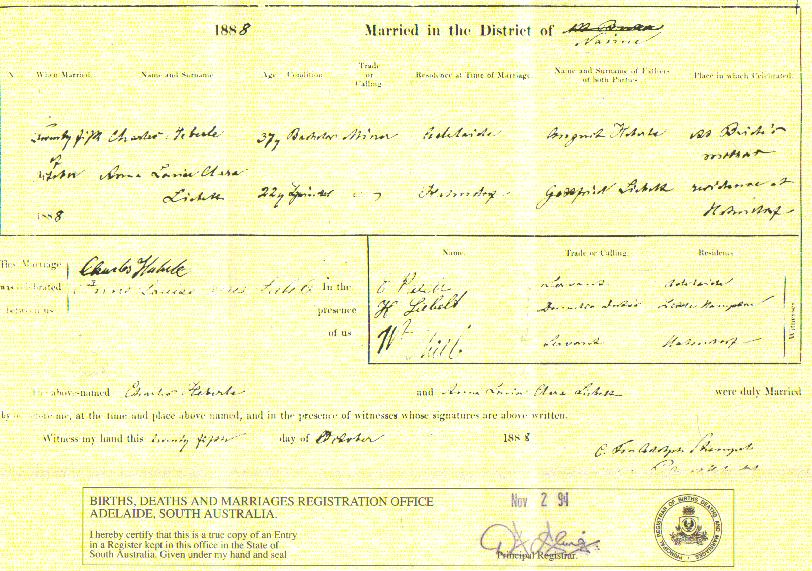 1888 Married in the District of Nairne
Trade
Name and Surname of Fathers
When Married. Name and Surname Age Condition or Residence at Time of Marriage of both Parties Place in which Celebrated.
Calling
Twenty fifth Charles Heberle 37y Bachelor Miner Adelaide August Heberle at Bride's
of mother
October Anna Louise Clara
Liebelt 22y Spinster Hahndorf Gottfried Liebelt residence at
1888 Hahndorf
This Marriage Charles Heberle
was celebrated Anna Louise Clara Liebelt In the
between us presence
of us
Name. Trade or Calling Residents
Servant Adelaide
H Liebelt Domestic Duties
Servant Hahndorf
Witnesses
The above-named Charles Heberle and Anna Louise Clara Liebelt were duly Married
by me, at the time and place above named, and in the presence of witnesses whose signatures are above written.
Witness my hand this twenty fifth day of October 1888
BIRTHS, DEATHS AND MARRIAGES REGISTRATION OFFICE
ADELAIDE, SOUTH AUSTRALIA.
Nov 2 94
I hereby certify that this is a true copy of an Entry
in a Register kept in this office in the State of
South Australia. Given under my hand and seal
Principal Registrar.
PRINCIPAL REGISTRAR OF BIRTHS DEATHS AND MARRIAGES